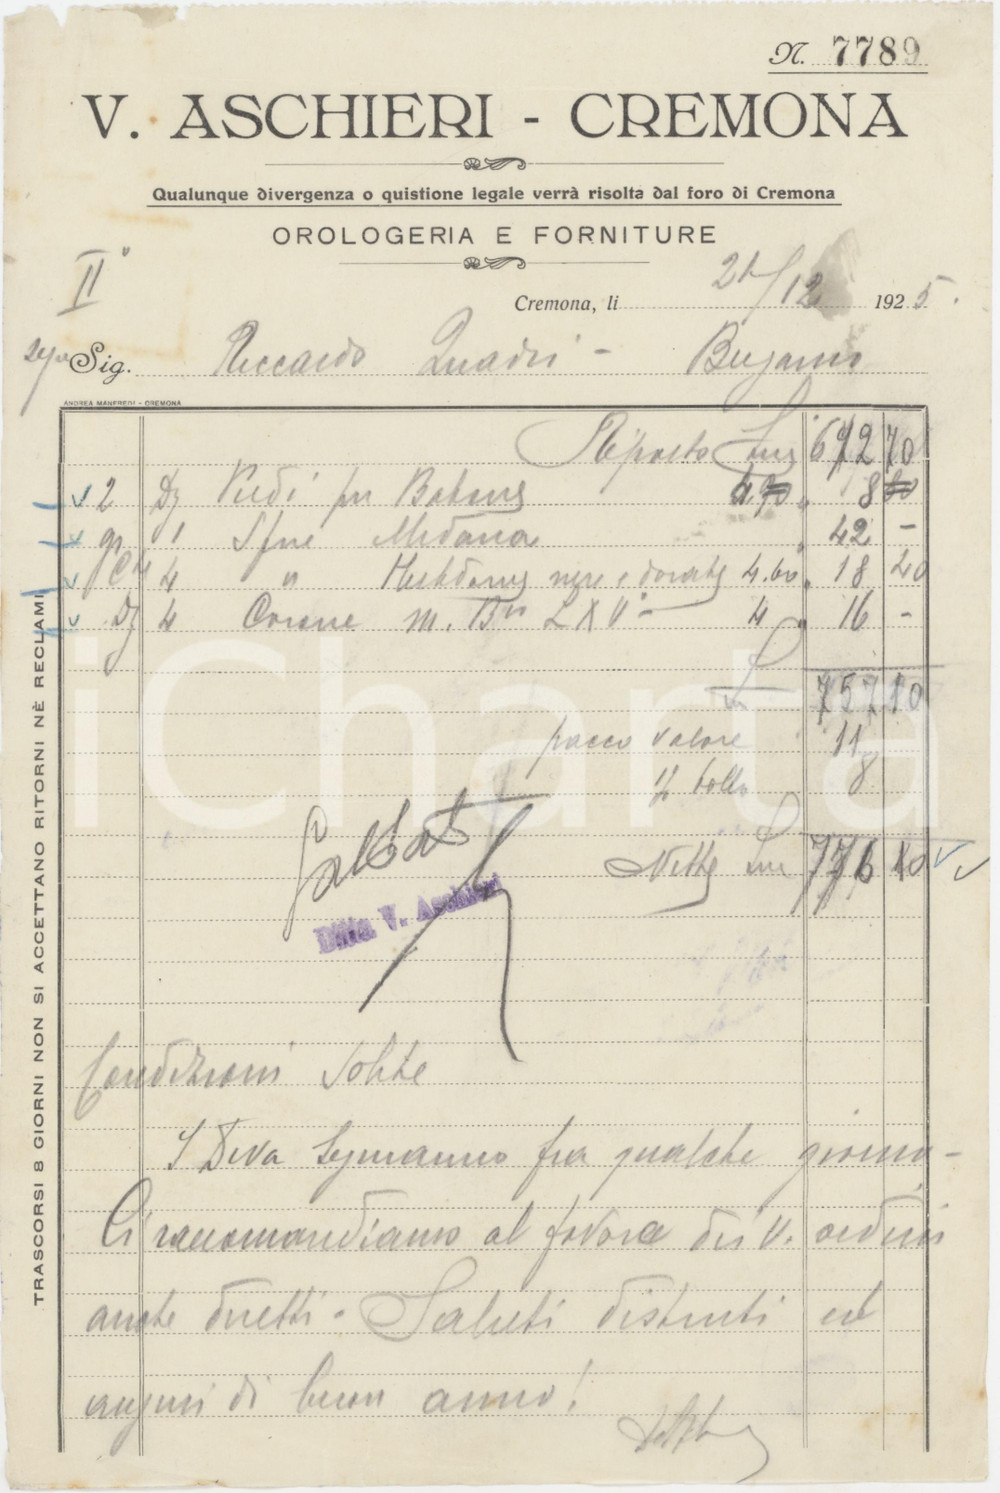 N. 7789
V. ASCHIERI - CREMONA
Qualunque divergenza o quistione legale verrà risolta dal foro di Cremona
OROLOGERIA E FORNITURE
II°
Cremona, li 21/12 1925.
Sig. Riccardo Quadri - Bergamo
ANDREA MANFREDI - CREMONA
Riporto Lire 672 70
2 Dz Piedi per 4.70 8
1 Sfere 42 -
4 " nere e dorate 4.60 18 20
Dz 4 Corone m. LXV - 4 16 -
757 10
pacco valore 11
bollo 8
Nette Lire 776 10
Saldato
Ditta V. Aschieri
TRASCORSI 8 GIORNI NON SI ACCETTANO RITORNI NÈ RECLAMI
Condizioni solite
fra qualche giorno -
Ci raccomandiamo al favore dei V. ordini
anche diretti - Saluti distinti ed
auguri di buon anno!
iCharta